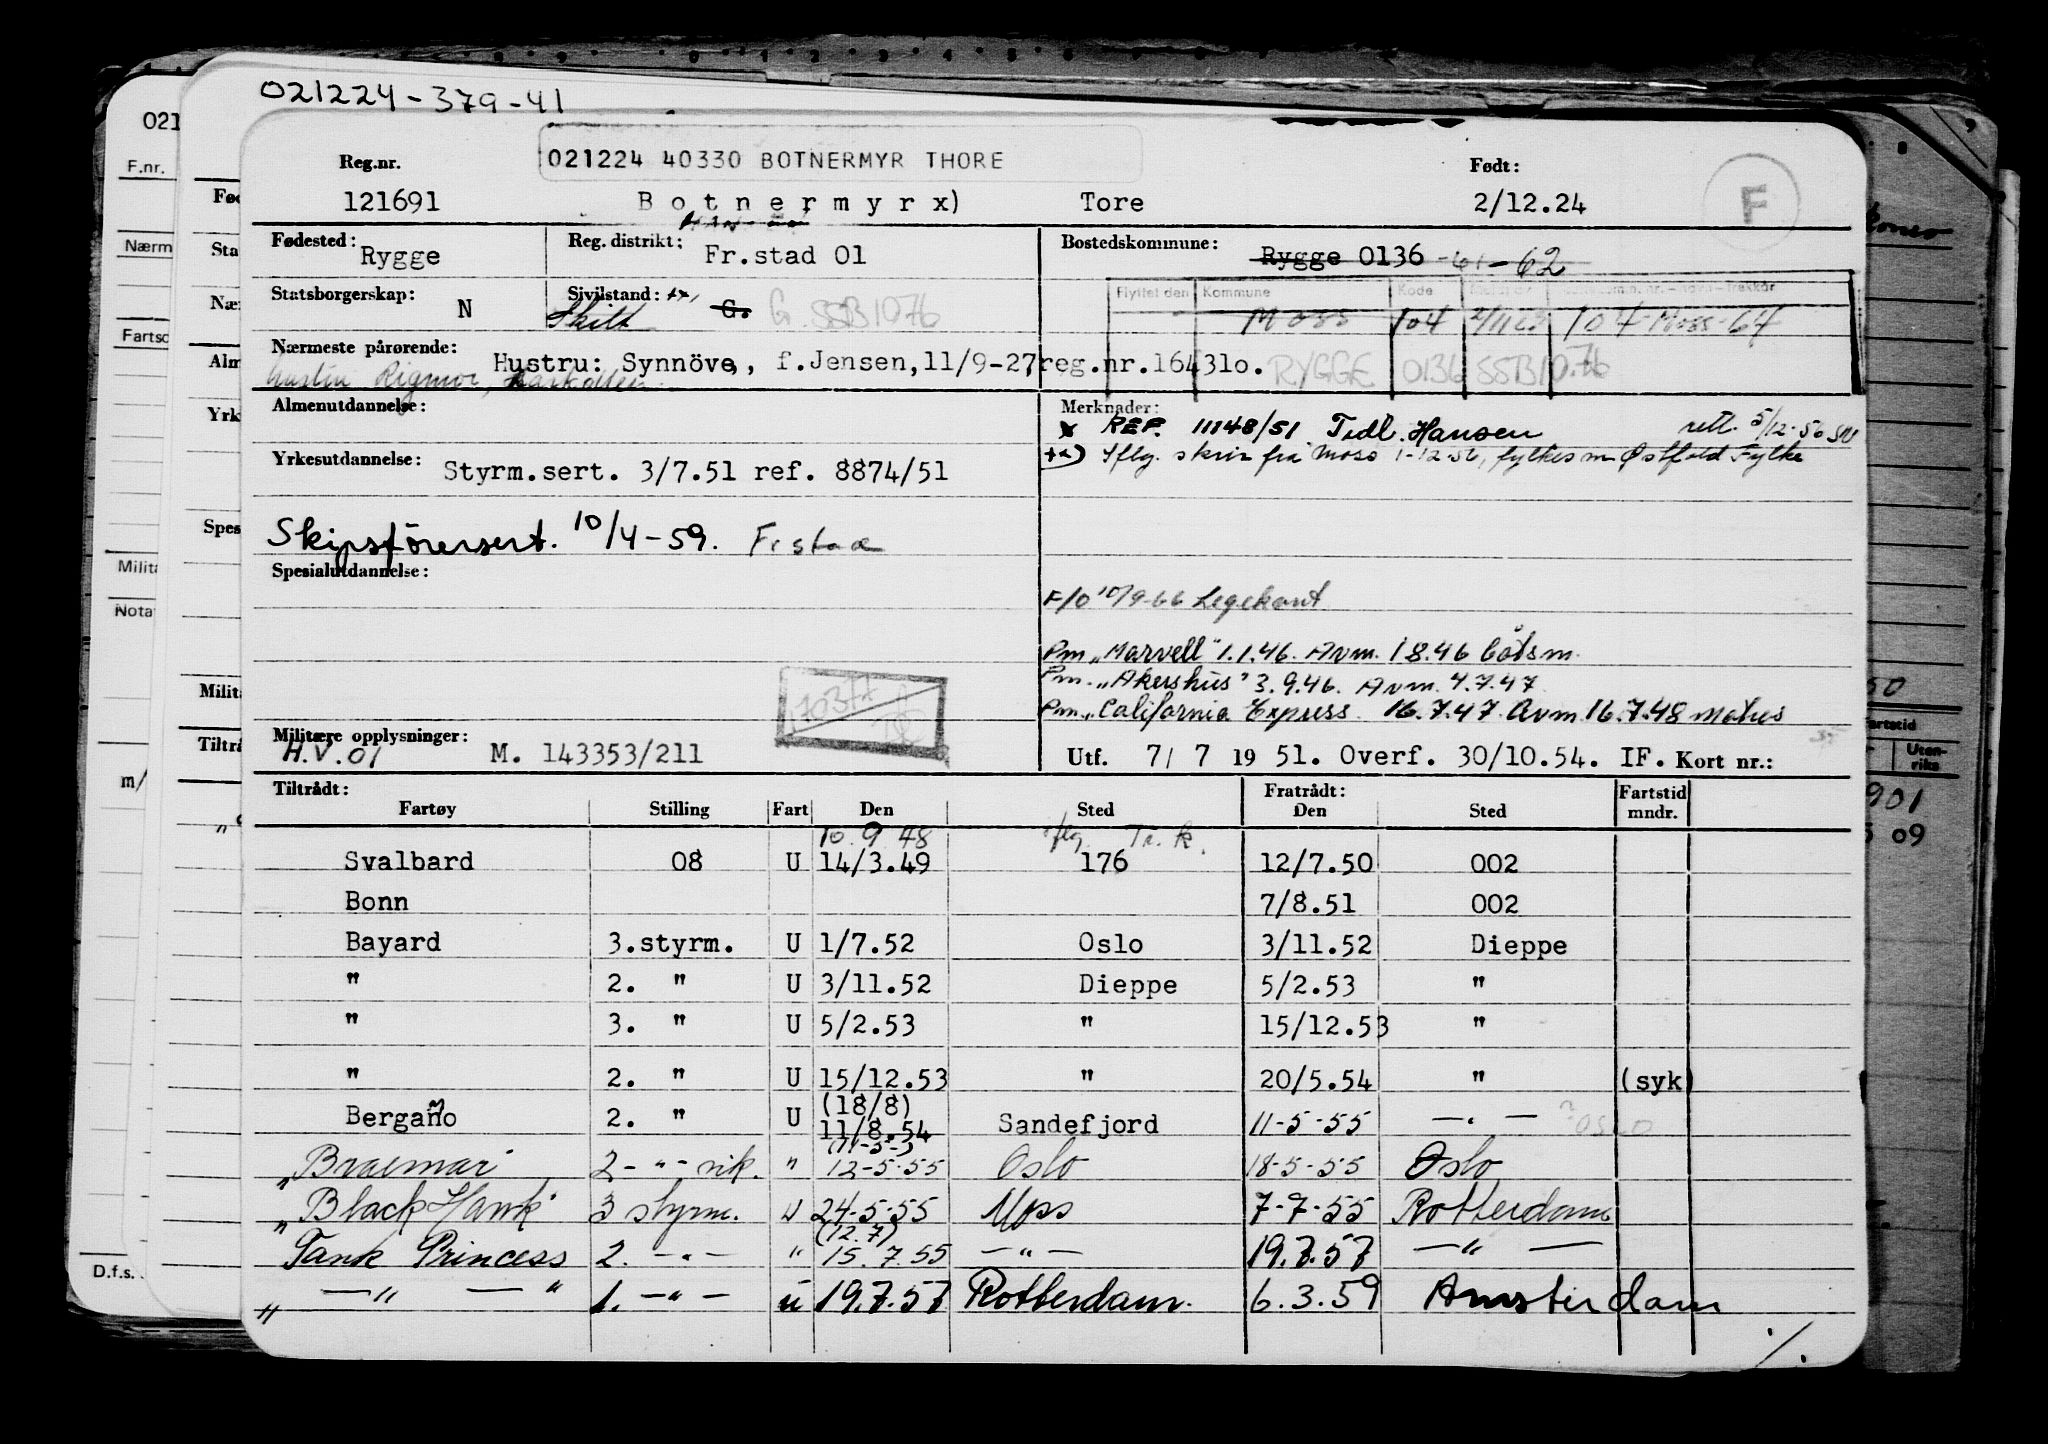 021224-379-41
021224 40330 BOTNERMYR THORE
Reg.nr. Født:
121691 Botnermyr x) Tore 2/12.24
F
Fødested: Rygge Reg. distrikt: Fr.stad 01 Bostedskommune: Rygge 0136 -61-62
Statsborgerskap: N Sivilstand: xx, Skilt G. G. SSB 10 76
Flyttet den Kommune Kode
Moss 104 104-Moss-64
Nærmeste pårørende: Hustru: Synnöve, f.Jensen, 11/9-27 reg.nr.16431o. RYGGE 0136 SSB 10.76
hustru Rigmor,
Almenutdannelse: Merknader:
x REF. 11148/51 Tidl. Hansen rett. 5/12-56
Yrkesutdannelse: Styrm.sert. 3/7.51 ref. 8874/51
xx) Iflg. skriv fra Moss 1-12-56, fylkesm Østfold Fylke
Skipsförersert. 10/4-59. Frstad
Spesialutdannelse:
F/O 10/9-66 Legekont
Pm „Marvell" 1.1.46. Avm. 1 8.46 båtsm.
Pm. „Akershus" 3.9.46. Avm. 4.7.47
Pm. „California Express. 16.7.47. Avm. 16.7.48 matros
Militære opplysninger: H.V.01 M. 143353/211
Utf. 7/ 7 19 51. Overf. 30/10.54. IF. Kort nr.:
Tiltrådt: Fratrådt: Fartstid
Fartøy Stilling Fart Den Sted Den Sted mndr.
10.9.48 iflg. Tr.k.
Svalbard 08 U 14/3.49 176 12/7.50 002
Bonn 7/8.51 002
Bayard 3.styrm. U 1/7.52 Oslo 3/11.52 Dieppe
" 2. " U 3/11.52 Dieppe 5/2.53 "
" 3. " U 5/2.53 " 15/12.53 "
" 2. " U 15/12.53 " 20/5.54 " (syk)
(18/8)
Bergamo 2. " U 11/8.54 Sandefjord 11-5-55 — . — ? OSLO
(11-5-)
„Braemar" 2 - " - vik. " 12-5-55 Oslo 18-5-55 Oslo
„Black Hawk" 3 styrm. U 24-5-55 Moss 7-7-55 Rotterdam
(12.7)
Tank Princess 2. — " — " 15.7.55 — " — 19.7.57 — " —
„ — " — " 1. — " — U 19.7.57 Rotterdam. 6.3.59 Amsterdam
%.
021
F.nr.
Nærm
Fartsc
Milita
Notat
m/
D.f.s.
Fød
Sta
Nær
Alm
Yrk
Spes
Milit
Tiltrå
50
Fartstid
Uten-
riks
901
09